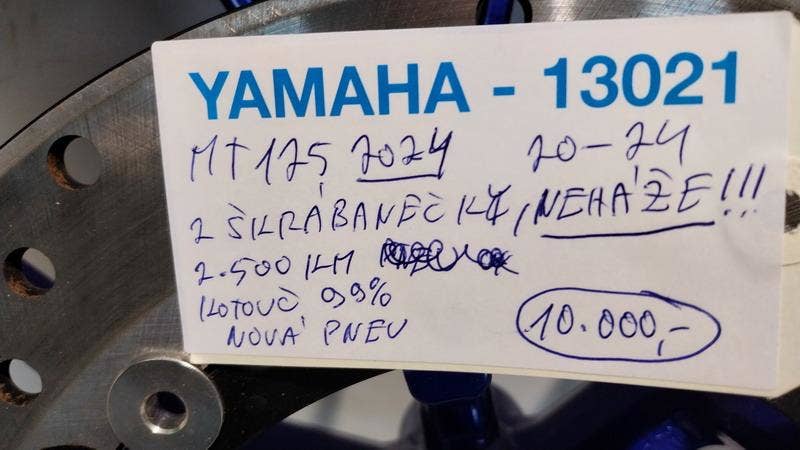 YAMAHA - 13021
MT 125 2024 20-24
2 ŠKRÁBANEČKY, NEHÁŽE!!!
2.500 KM
KOTOUČ 99%
NOVÁ PNEU
10.000,-